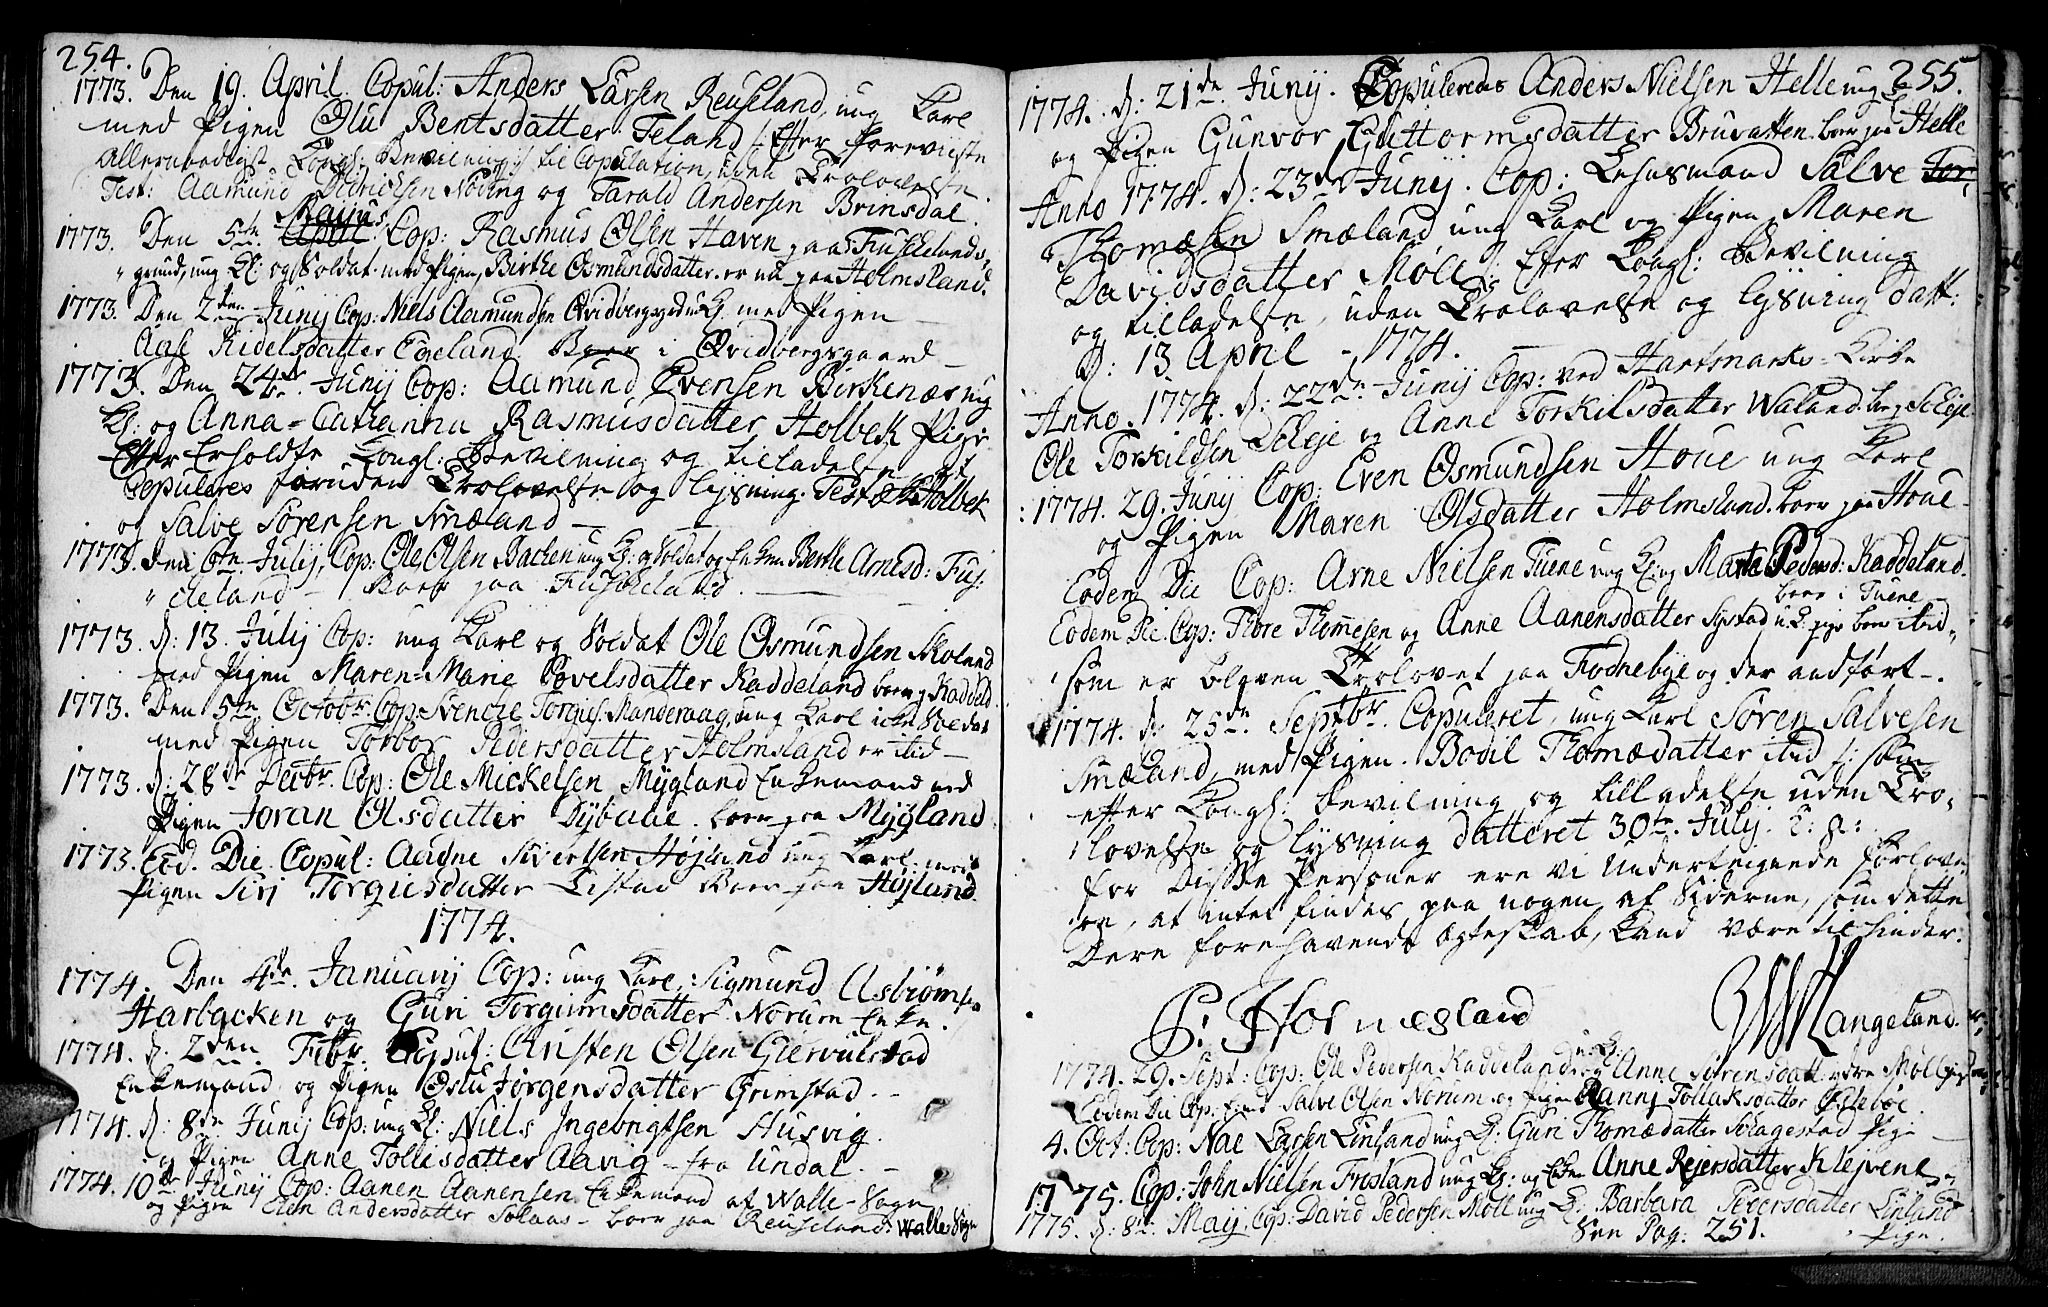 254.
1773. Den 19. April. Copul: Anders Larsen Reuseland, ung Karl
med Pigen Olu Bentsdatter Teland /: Efter foreviiste
allernaadigst Kongl: Bevilning :/ til Copulation, uden Trolovelse
Test: Aamund Didrichsen Nöding og Tarald Andersen Brinsdal.
Majus
1773. Den 5te April Cop: Rasmus Olsen Haven paa Fuskelands-
grund, ung K: og Soldat med Pigen, Birthe Osmundsdatter. er nu paa Holmsland.
1773. Den 2den Junij Cop: Niels Aamundsen Qvidbergsgrd ung K. med Pigen
Aase Kidelsdatter Egeland. Boer i Qvidbergsgaard
1773. Den 24de Junij Cop: Aamund Evensen Birkenæs ung
K: og Anna-Catharina Rasmusdatter Holbek Pige
Efter Erholdte Kongl: Bevilning og tilladelse at
Copuleres foruden Trolovelse og lysning. Test Holbek
og Salve Sørensen Smæland
1773. Den 6te Julij, Cop: Ole Olsen Backen ung K: og Soldat og Enken Berthe Arnesd: Fus-
keland - Boer paa Fuskeland.
1773 d: 13. Julij Cop: ung Karl og Soldat Ole Osmundsen Skoland
med Pigen Maren-Marie Povelsdatter Kaddeland boer p. Kaddeld.
1773. Den 5te Octobr. Cop: Svenche Torgus. Manderaag, ung Karl icke Soldat
med Pigen Torbor Pedersdatter Holmsland er ibid
1773. d: 28de Decbr. Cop: Ole Mickelsen Mygland Enkemand med
Pigen Joran Olsdatter Dybaae. boer paa Mygland
1773. Eod. Die. Copul: Aadne Sivertsen Højland ung Karl med
Pigen Siri Torgiusdatter Listad Boer paa Højland.
1774.
1774. Den 4de Januarij Cop: ung Karl: Sigmund Asbiømsen
Harbacken og Guri Torgiumsdatter Norum Enke.
1774. d: 2den Febr. Copul: Christen Olsen Giervulstad
Enkemand og Pigen Oslu Jørgensdatter Grimstad.
1774. d: 8de Junij Cop: ung K: Niels Ingebrigtsen Husvig
og Pigen Anne Tollisdatter Aavig - fra Undal.
1774. 10de Junij Cop: Aanen Aanensen Enkemand af Walle-Sogn
og Pigen Elen Andersdatter Solaas - boer paa Reuseland: Walle Sogn
255.
1774. d: 21de Junij. Copuleredes Anders Nielsen Helle ung K
og Pigen Gunvor Guttormsdatter Bruvatten. boer paa Helle
Anno 1774. d: 23de Junij. Cop: Lehnsmand Salve Tor,
Thomæsen Smæland ung Karl og Pigen Maren
Davidsdatter Møll /: Efter Kongl: Bevilning
og tilladelse, uden Trolovelse og lysning datt:
D: 13 April - 1774.
Anno. 1774. d: 22de Junij Cop: ved Hartmarks-Kirke
Ole Torkildsen Steje og Anne Torkilsdatter Waland. b: p. Steje
1774. 29. Junij Cop: Even Osmundsen Houe ung Karl
og Pigen Maren Olsdatter Holmsland. boer paa Houe
Eodem Die Cop: Arne Nielsen Tuene ung K: og Marta Pedersd: Kaddeland
boer i Tuene
Eodem Die. Cop: Thore Thommesen og Anne Aanensdatter Systad u. K. pige boer ibid
som er bleven Trolovet paa Fodnebye og der andført.
1774. d: 25de Septbr. Copuleret, ung Karl Søren Salvesen
Smæland, med Pigen. Bodil Thomædatter ibid /: som
efter Kongl: bevilning og tilladelse uden Tro-
lovelse og lysning datteret 30te. Julij. h: a:
for Disse Personer ere vi Undertegnede forlove-
re, at intet findes paa nogen af Siderne, som dette
Dere forehavende Ægteskab, kand være til hinder.
P: Hornesland
Langeland
1774. 29. Sept: Cop: Ole Pedersen Kaddeland u. K: og Anne Sørensdatt: ydre Møll
Eodem Die Cop: Salve Olsen Norum og Pigen Ranni Tollaksdatter Øslebøe.
4. Oct: Cop: Nae Larsen Linland ung K: Guri Thomædatter Søragestad Pige
1775. Cop: John Nielsen Frøsland ung K: og Enken Anne Rejersdatter Klejvene
1775. d: 8de Maij Cop: David Pedersen Møll ung K. Barbara Pedersdatter Linland
See Pag: 251. Pige.